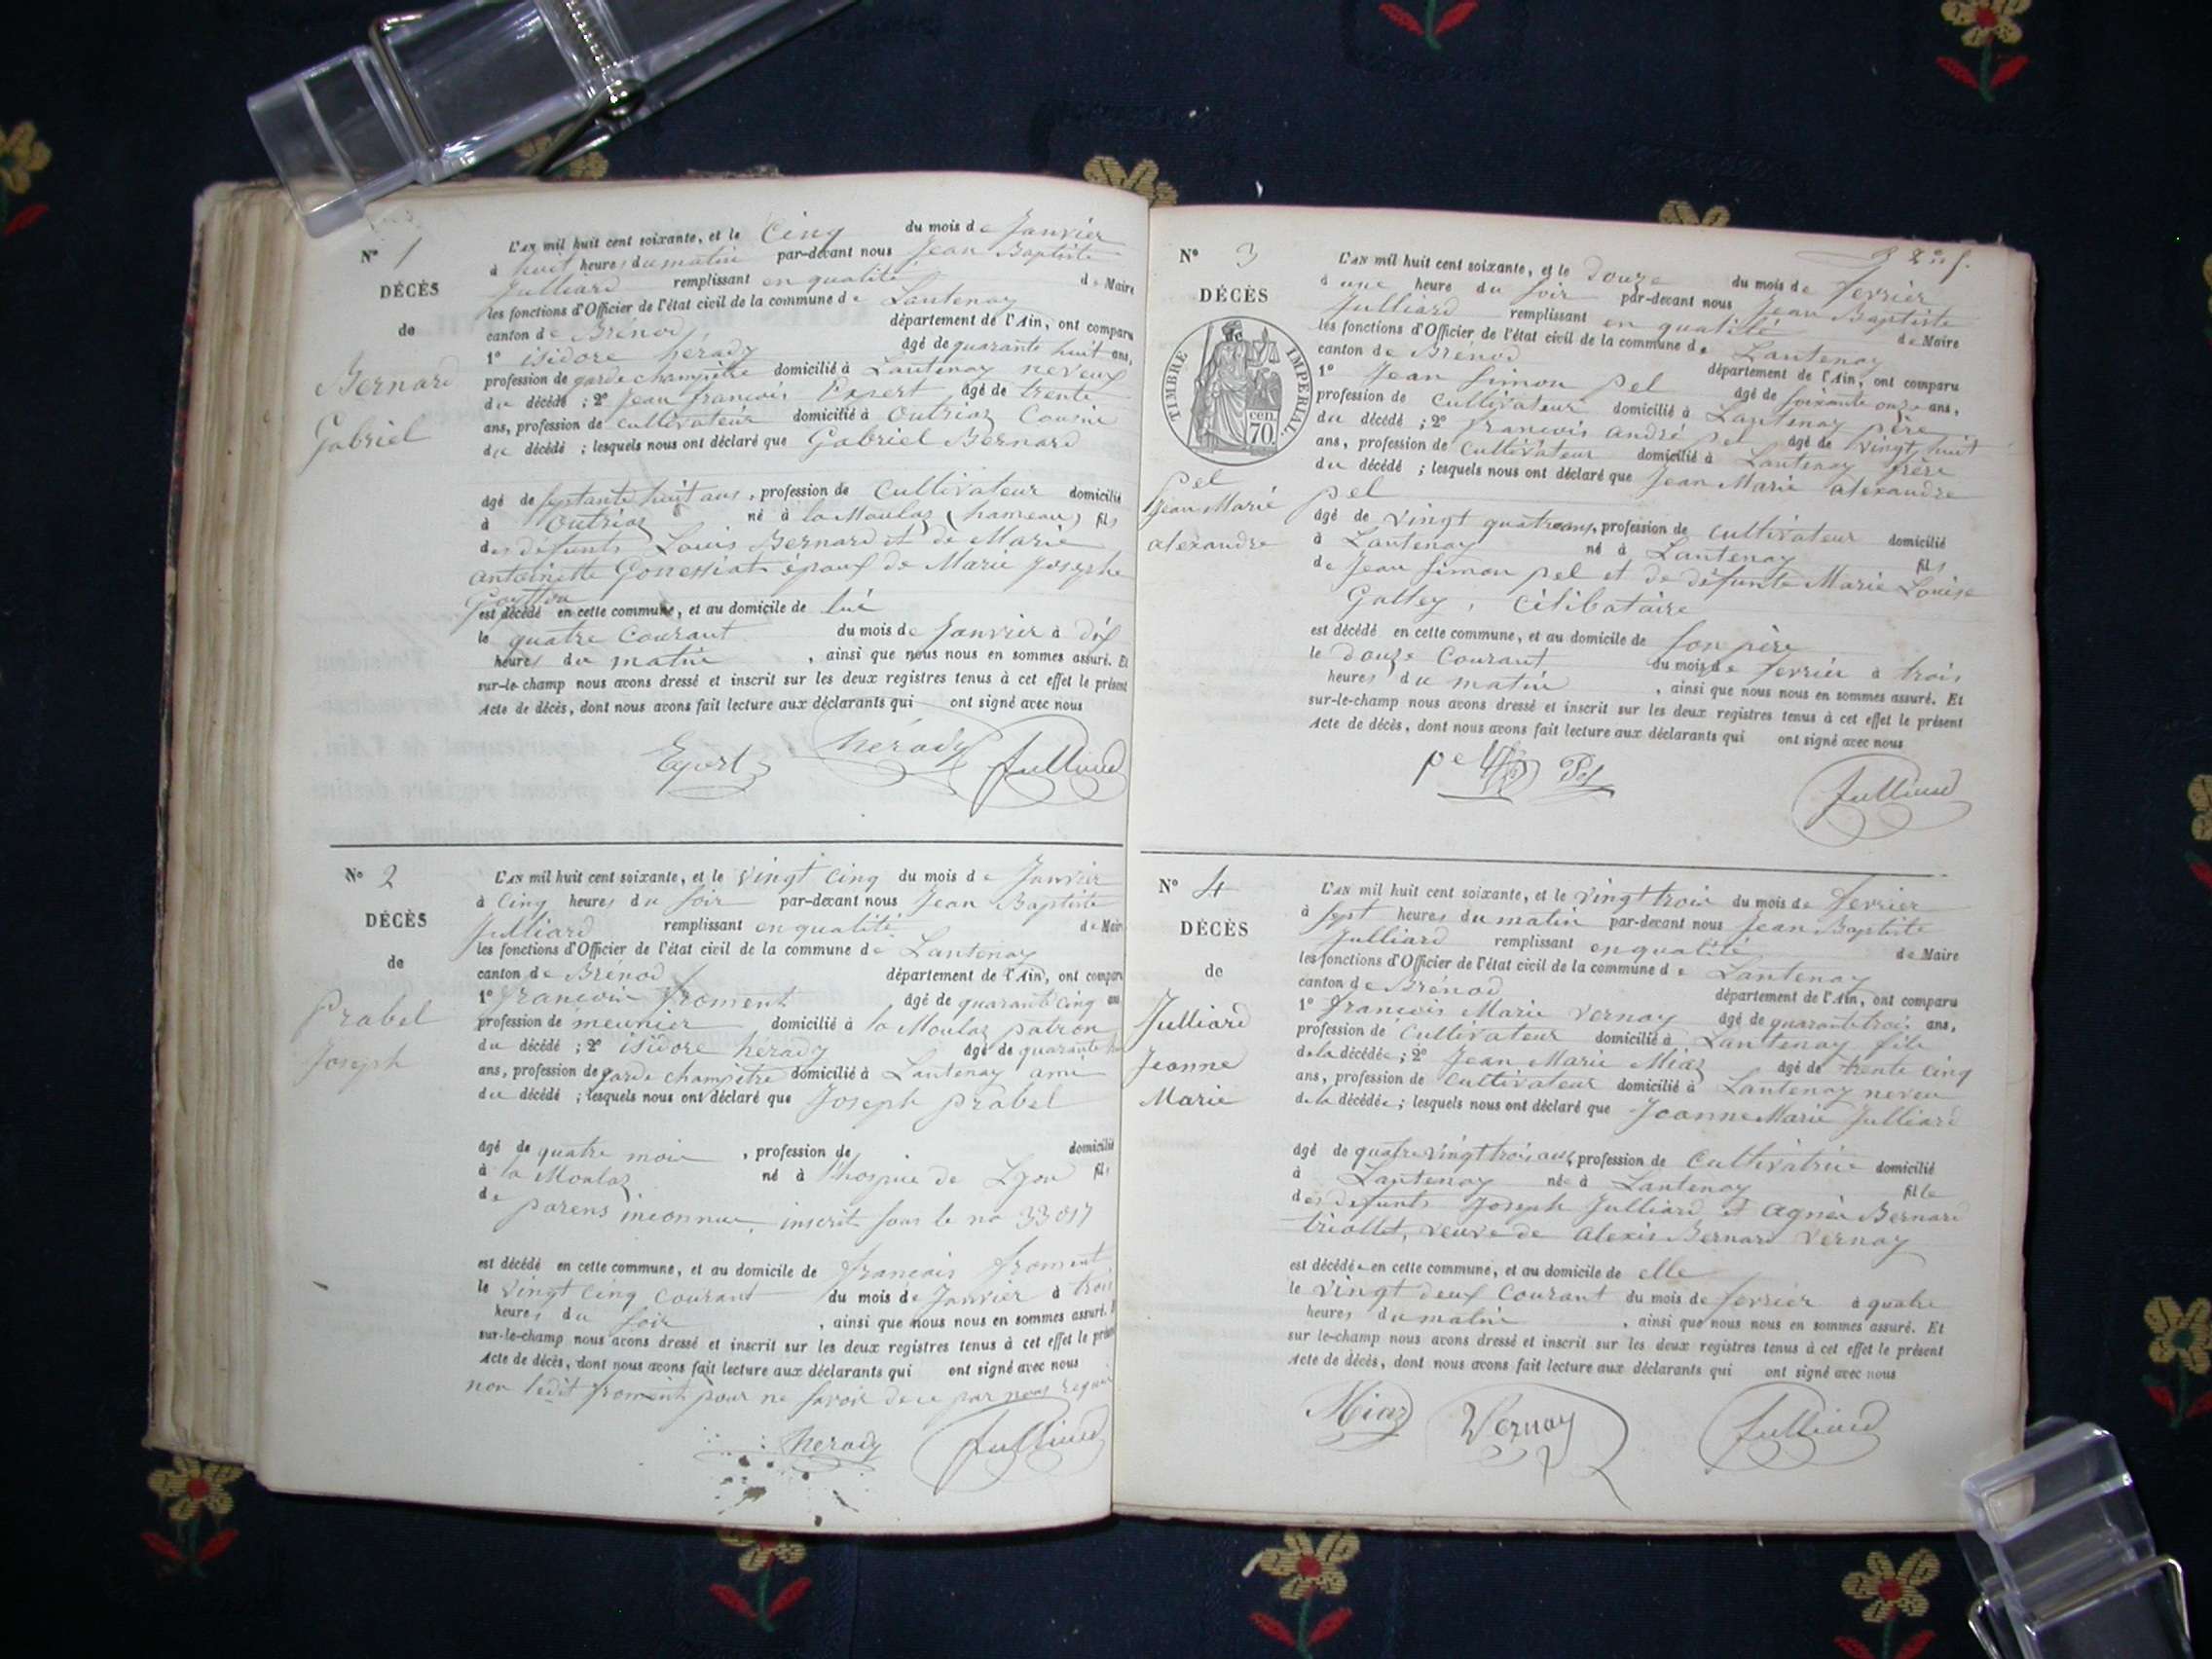 N° 1
DÉCÈS
de
Bernard
Gabriel
L'AN mil huit cent soixante, et le Cinq du mois de Janvier
à huit heures du matin par-devant nous Jean Baptiste
Julliard remplissant en qualité de Maire
les fonctions d'Officier de l'état civil de la commune de Lantenay
canton de Brénod, département de l'Ain, ont comparu
1° isidore hérady âgé de quarante huit ans,
profession de garde champêtre domicilié à Lantenay neveux
du décédé ; 2° Jean francois Expert âgé de trente
ans, profession de cultivateur domicilié à Outriaz Cousin
du décédé ; lesquels nous ont déclaré que Gabriel Bernard
âgé de septante huit ans, profession de Cultivateur domicilié
à Outriaz né à la Moulaz (hameau) fils
des défunts Louis Bernard et de Marie
antoinette Gonessiat époux de Marie Josephe
est décédé en cette commune, et au domicile de lui
le quatre Courant du mois de Janvier à dix
heures du matin , ainsi que nous nous en sommes assuré. Et
sur-le-champ nous avons dressé et inscrit sur les deux registres tenus à cet effet le présent
Acte de décès, dont nous avons fait lecture aux déclarants qui ont signé avec nous
Expert hérady Julliard
N° 2
DÉCÈS
de
Prabel
Joseph
L'AN mil huit cent soixante, et le Vingt Cinq du mois de Janvier
à Cinq heures du soir par-devant nous Jean Baptiste
Julliard remplissant en qualité de Maire
les fonctions d'Officier de l'état civil de la commune de Lantenay
canton de Brénod département de l'Ain, ont comparu
1° francois froment âgé de quarante cinq ans
profession de meunier domicilié à la Moulaz patron
du décédé ; 2° isidore herady âgé de quarante
ans, profession de garde champêtre domicilié à Lantenay ami
du décédé ; lesquels nous ont déclaré que Joseph prabel
âgé de quatre mois , profession de domicilié
à la Moulaz né à l'hospice de Lyon fils
de parens inconnus, inscrit sous le no 33017
est décédé en cette commune, et au domicile de francois froment
le vingt cinq courant du mois de Janvier à trois
heures du soir , ainsi que nous nous en sommes assuré. E
sur-le-champ nous avons dressé et inscrit sur les deux registres tenus à cet effet le présent
Acte de décès, dont nous avons fait lecture aux déclarants qui ont signé avec nous
non ledit froment pour ne savoir de ce par nous requis
herady Julliard
N° 3
DÉCÈS
TIMBRE IMPÉRIAL.
cen.
70.
pel
Jean Marie
alexandre
L'AN mil huit cent soixante, et le Douze du mois de fevrier
à une heure du soir par-devant nous Jean Baptiste
Julliard remplissant en qualité de Maire
les fonctions d'Officier de l'état civil de la commune de Lantenay
canton de Brénod département de l'Ain, ont comparu
1° Jean Simon pel âgé de soixante onze ans,
profession de Cultivateur domicilié à Lantenay père
du décédé ; 2° francois andré pel âgé de vingt huit
ans, profession de Cultivateur domicilié à Lantenay frère
du décédé ; lesquels nous ont déclaré que Jean Marie alexandre
pel
âgé de vingt quatre ans, profession de Cultivateur domicilié
à Lantenay né à Lantenay fils
de Jean Simon pel et de défunte Marie Louise
Gattey, Célibataire
est décédé en cette commune, et au domicile de son père
le douze Courant du mois de fevrier à trois
heures du matin , ainsi que nous nous en sommes assuré. Et
sur-le-champ nous avons dressé et inscrit sur les deux registres tenus à cet effet le présent
Acte de décès, dont nous avons fait lecture aux déclarants qui ont signé avec nous
pel Pel Julliard
N° 4
DÉCÈS
de
Julliard
Jeanne
Marie
L'AN mil huit cent soixante, et le vingt trois du mois de fevrier
à sept heures du matin par-devant nous Jean Baptiste
Julliard remplissant en qualité de Maire
les fonctions d'Officier de l'état civil de la commune de Lantenay
canton de Brénod département de l'Ain, ont comparu
1° francois Marie Vernay âgé de quarante trois ans,
profession de Cultivateur domicilié à Lantenay fils
de la décédée ; 2° Jean Marie Miaz âgé de trente cinq
ans, profession de Cultivateur domicilié à Lantenay neveu
de la décédée ; lesquels nous ont déclaré que Jeanne Marie Julliard
âgé de quatre vingt trois ans, profession de Cultivatrice domicilié
à Lantenay née à Lantenay fille
des défunts Joseph Julliard et agnès Bernard
triollet, veuve de alexis Bernard Vernay
est décédée en cette commune, et au domicile de elle
le vingt deux Courant du mois de fevrier à quatre
heures du matin , ainsi que nous nous en sommes assuré. Et
sur le-champ nous avons dressé et inscrit sur les deux registres tenus à cet effet le présent
Acte de décès, dont nous avons fait lecture aux déclarants qui ont signé avec nous
Miaz Vernay Julliard